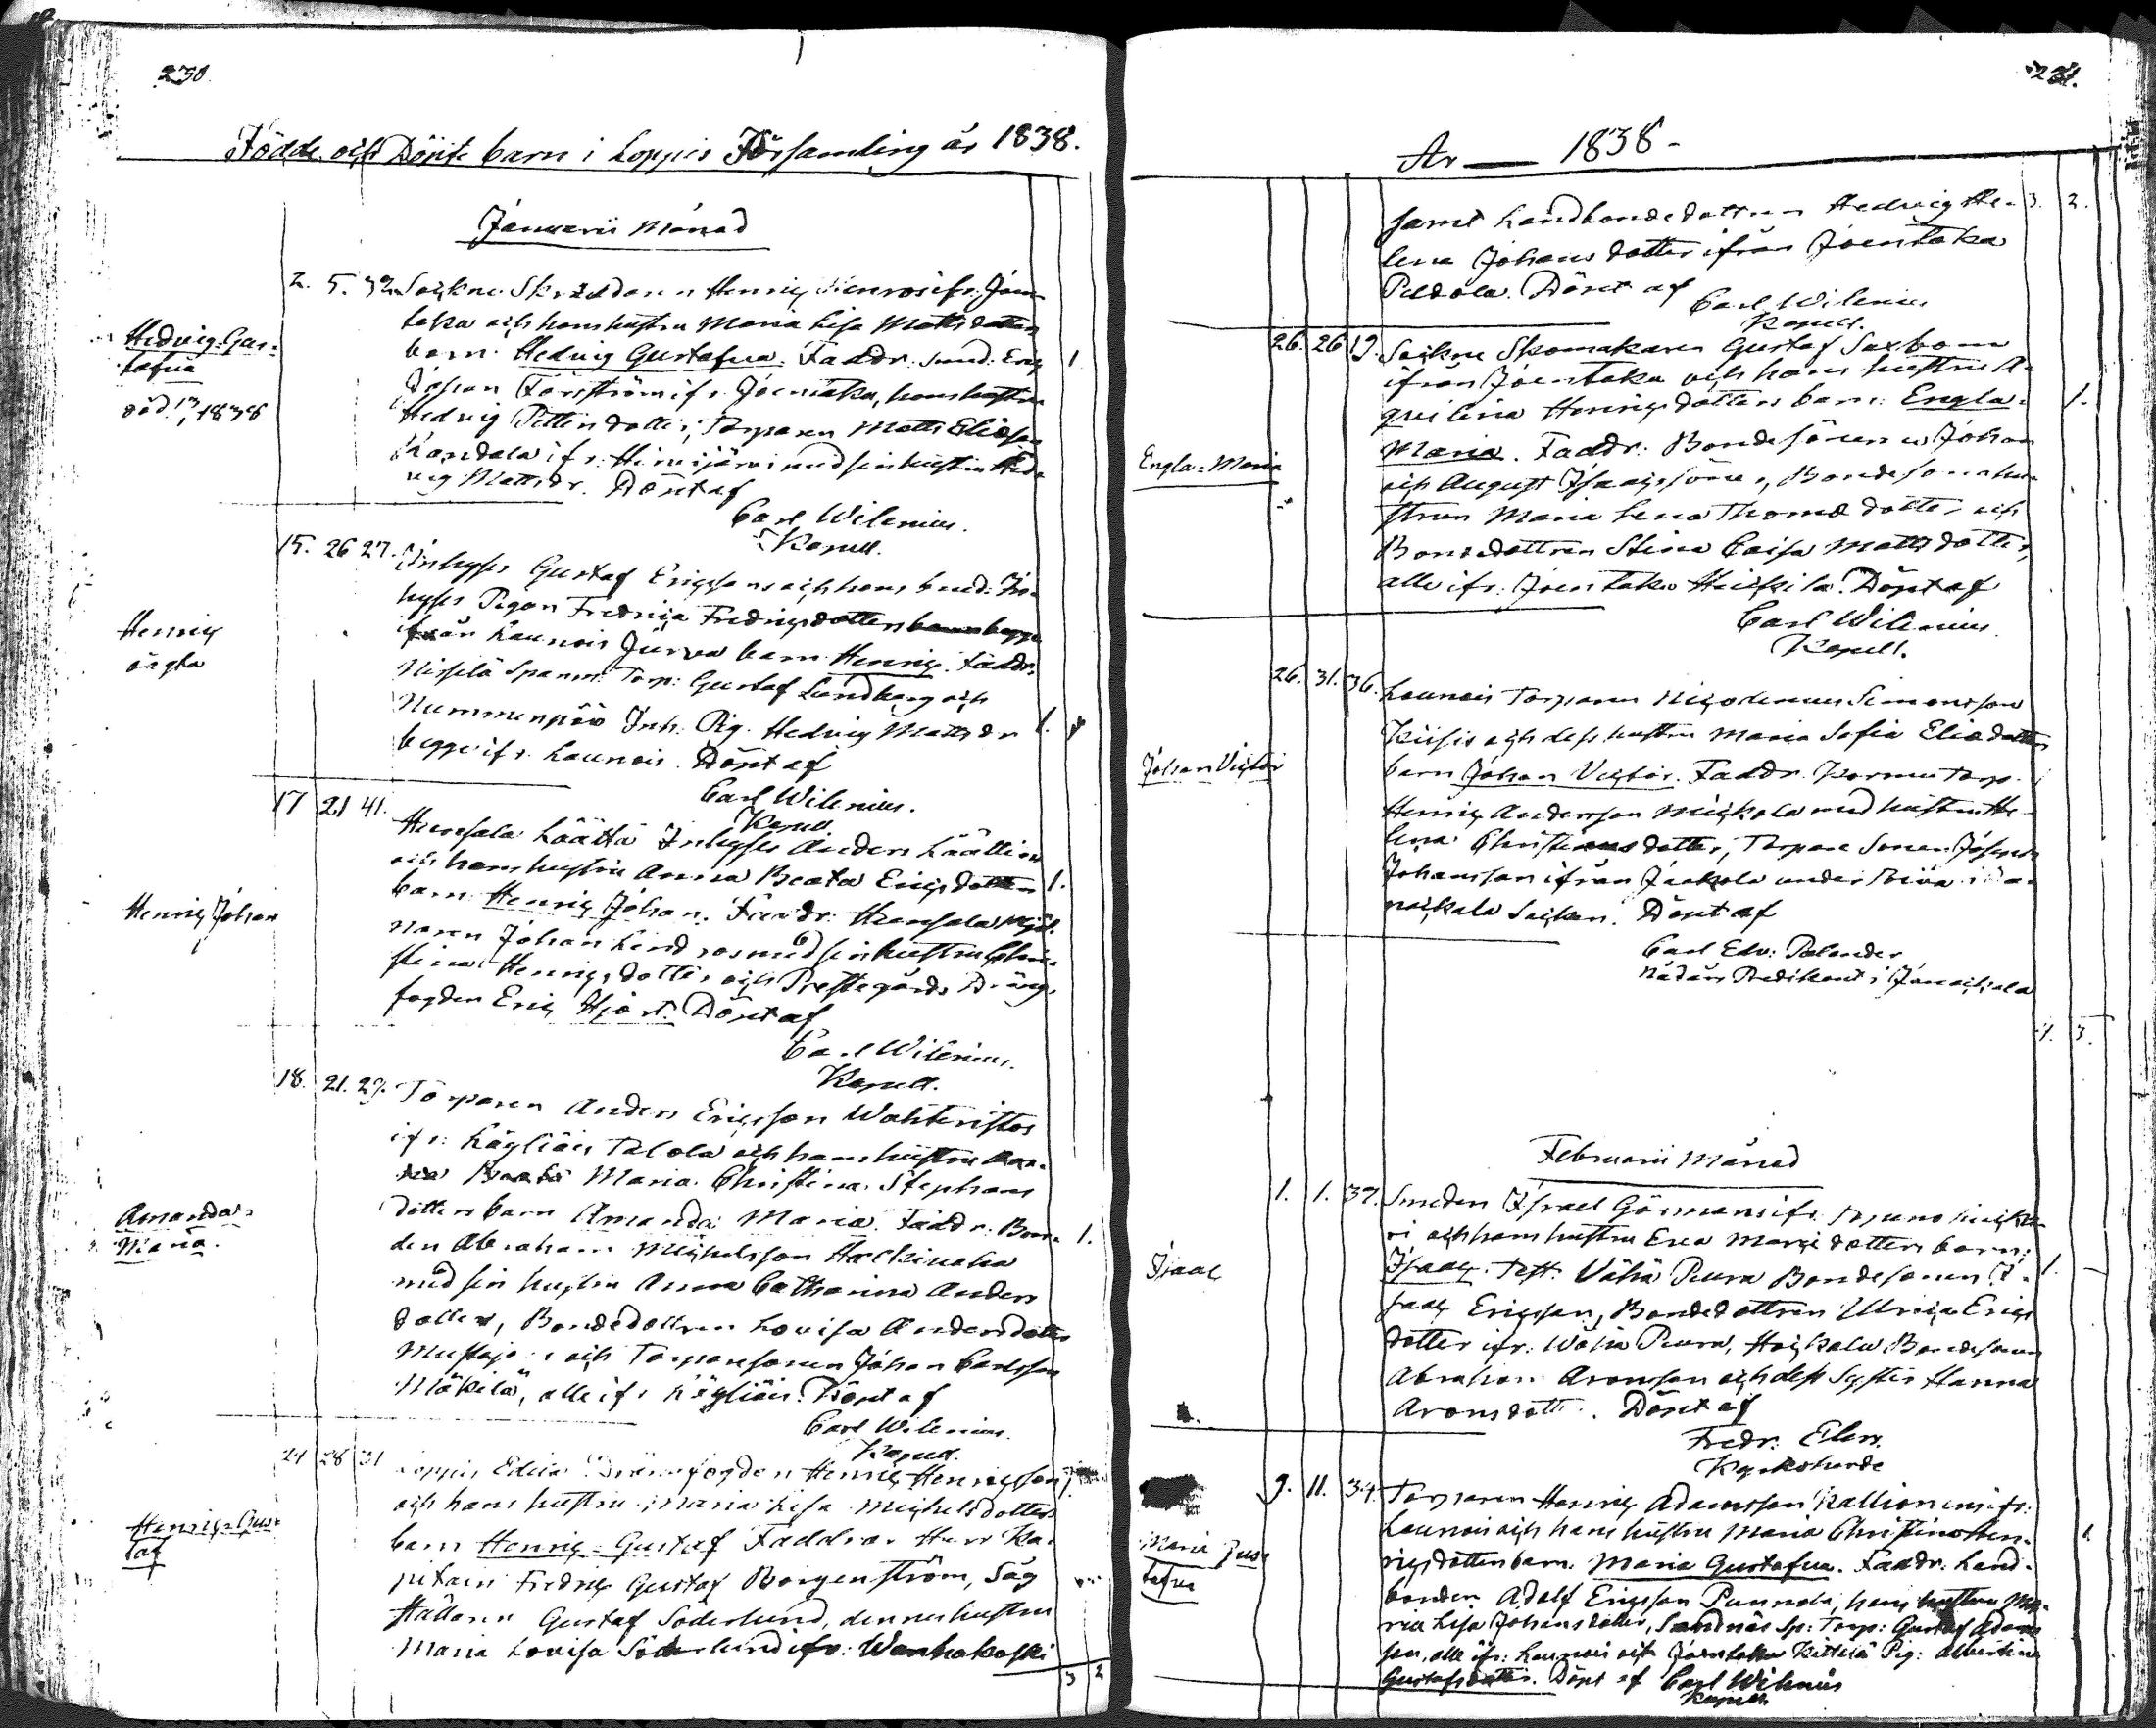 230.
Födde och Döpte barn i Loppis Församling år 1838.
Januarii Månad
Hedvig-Gus-
tafva
död 13/ 1838
2. 5. 32. Sockne Skräddaren Henric ifr. Joen-
taka och hans hustru Maria Lisa Mattsdotters
barn Hedvig Gustafva. Faddr. Smed. Eric 1
Johan Forsström ifr. Joentaka, hans hustru
Hedvig Pettersdotter, Torparen Matts Eliasson
Kandala ifr. Hirvijärvi med sin hustru Hed-
vig Mattsdr. Döpt af
Carl Wilenius.
Kapell.
Henric
oägta
15. 26 27. Inhyses Gustaf Ericssons och hans Inh-
hyses Pigan Fredrica Fredricsdotters barn begge
ifrån Launois Jurva barn Henric. Faddr.
Nissilä Spanm. Torp: Gustaf Lundberg och
Nummenpää Inh. Pig. Hedvig Mattsdr 1.
begge ifr. Launois. Döpt af
Carl Wilenius.
Kapell
Henric Johan
17 21 41. Hunsala Läättä Inhyses Anders Läättiäis
och hans hustru Anna Beata Ericsdotters 1.
barn Henric Johan. Faddr. Hunsala Mjöl-
naren Johan Lindros med sin hustru Chri-
stina Henricsdotter och Prestegårds Dräng-
fogden Eric Hjort. Döpt af
Carl Wilenius.
Kapell.
Amanda-
Maria.
18. 21. 27. Torparen Anders Ericsson Wahteristos
ifr. Läyliäis Talola och hans hustru
Maria Christina Stephans
dotters barn Amanda Maria. Faddr. Bon- 1.
den Abraham Michelsson
med sin hustru Anna Catharina Anders
dotter, Bondedottren Lovisa Andersdotter
och Torparesonen Johan Carlsson
Mäkilä, alle ifr. Läyliäis. Döpt af
Carl Wilenius.
Kapell.
Henric-Gus-
taf
24 28 31 Loppis Edeia Drängfogden Henric Henricsson
och hans hustru Maria Lisa Michelsdotters
barn Henric-Gustaf Faddrar Herr Ka-
pitain Fredric Gustaf Borgenström, Såg
ställaren Gustaf Söderlund, dennes hustru
Maria Lovisa Söderlund ifr: Wanhakoski
3 2
231.
År — 1838 -
samt Landbondedottren Hedvig He- 3. 2.
lena Johansdotter ifrån Joentaka
Peldola. Döpt af
Carl Wilenius
Kapell.
Engla-Maria
26. 26 19. Sockne Skomakaren Gustaf Saxbom
ifrån Joentaka och hans hustru A-
quilina Henricsdotters barn: Engla- 1.
Maria. Faddr. Bondesönerne Johan
och August Isaacssöner, Bondesonahu-
strun Maria Lena Thomædotter och
Bondedottren Stina Caisa Mattsdotter,
alle ifr. Joentaka Heickilä. Döpt af
Carl Wilenius
Kapell.
Johan Victor
26. 31. 36. Launois Torparen Nicodemus Simonsson
och dess hustru Maria Sofia Eliædotters
barn Johan Victor. Faddr. Torp.
Henric Andersson Mickola med hustru He-
lena Christiansdotter, Torpare Sonen Joseph
Johansson ifrån Jackola under i Ja-
nackala Socken. Döpt af
Carl Edv: Palander
Nådårs Predikant i Janackala
4. 3.
Februarii Månad
Isaac
1. 1. 37. Smeden Israel Görmans ifr.
och hans hustru Eva Maria dotters barn:
Isaac. Test. Vähä Peura Bondesonen I- 1.
saac Ericsson, Bondedottren Ulrica Erics
dotter ifr. Wähä Peura, Hoickala Bondesonen
Abraham Aronsson och dess Syster Hanna
Aronsdotter. Döpt af
Fredr: Elers.
Kyrkoherde
Maria Gus-
tafva
9. 11. 34. Torparen Henric Adamsson Kallioinens ifr.
Launois och hans hustru Maria Christina Hen- 1.
ricsdotters barn. Maria Gustafva. Faddr. Land-
bonden Adolf Ericsson Punnola, hans hustru Ma-
ria Lisa Johansdotter, Sandnäs Sp: Torp: Gustaf Adams
son, alle ifr: Launois och Joentaka Kittilä Pig: Albertina
Gustafsdotter. Döpt af Carl Wilenius
Kapell.